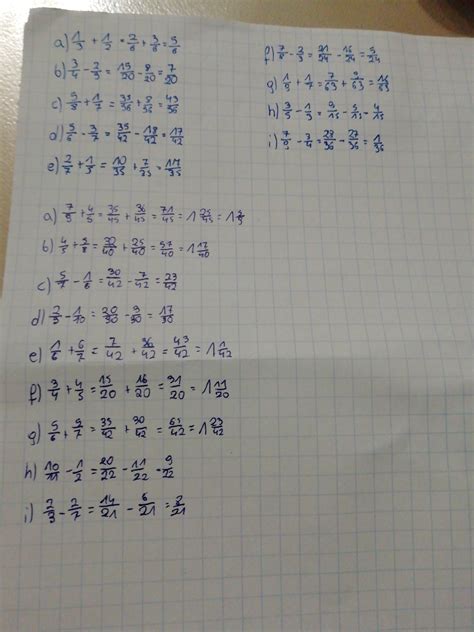 a) 1/3 + 1/2 = 2/6 + 3/6 = 5/6
b) 3/4 - 2/5 = 15/20 - 8/20 = 7/20
c) + 1/7 = 35/36 + 8/36 = 43/36
d) 5/6 - 3/7 = 35/42 - 18/42 = 17/42
e) 2/7 + 1/5 = 10/35 + 7/35 = 17/35
f) 7/8 - 2/3 = 21/24 - 16/24 = 5/24
g) 1/9 + 1/7 = 7/63 + 9/63 = 16/63
h) 3/5 - 1/3 = 9/15 - 5/15 = 4/15
i) 7/9 - 3/4 = 28/36 - 27/36 = 1/36
a) 7/9 + 4/5 = 35/45 + 36/45 = 71/45 = 1
b) 4/5 + 5/8 = 32/40 + 25/40 = 57/40 = 1 17/40
c) 5/7 - 1/6 = 30/42 - 7/42 = 23/42
d) 2/3 - 1/10 = 20/30 - 3/30 = 17/30
e) 1/6 + 6/7 = 7/42 + 36/42 = 43/42 = 1 1/42
f) 3/4 + 4/5 = 15/20 + 16/20 = 31/20 = 1 11/20
g) 5/6 + 5/7 = 35/42 + 30/42 = 65/42 = 1 23/42
h) 10/11 - 1/2 = 20/22 - 11/22 - 9/22
i) 2/3 - 2/7 = 14/21 - 6/21 = 8/21